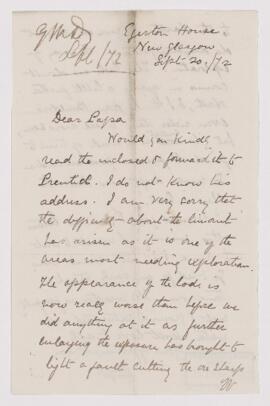 GMD
Sept/72
Egerton House
New Glasgow
Sept 20./72
Dear Papa
Would you kindly
read the inclosed & forward it to
Prentice. I do not know his
address. I am very sorry that
the difficulty about the
has arisen as it is one of the
areas most needing exploration.
The appearance of the lode is
now really worse than before we
did anything at it as further
enlarging the exposure has brought to
light a fault cutting the ore sharp